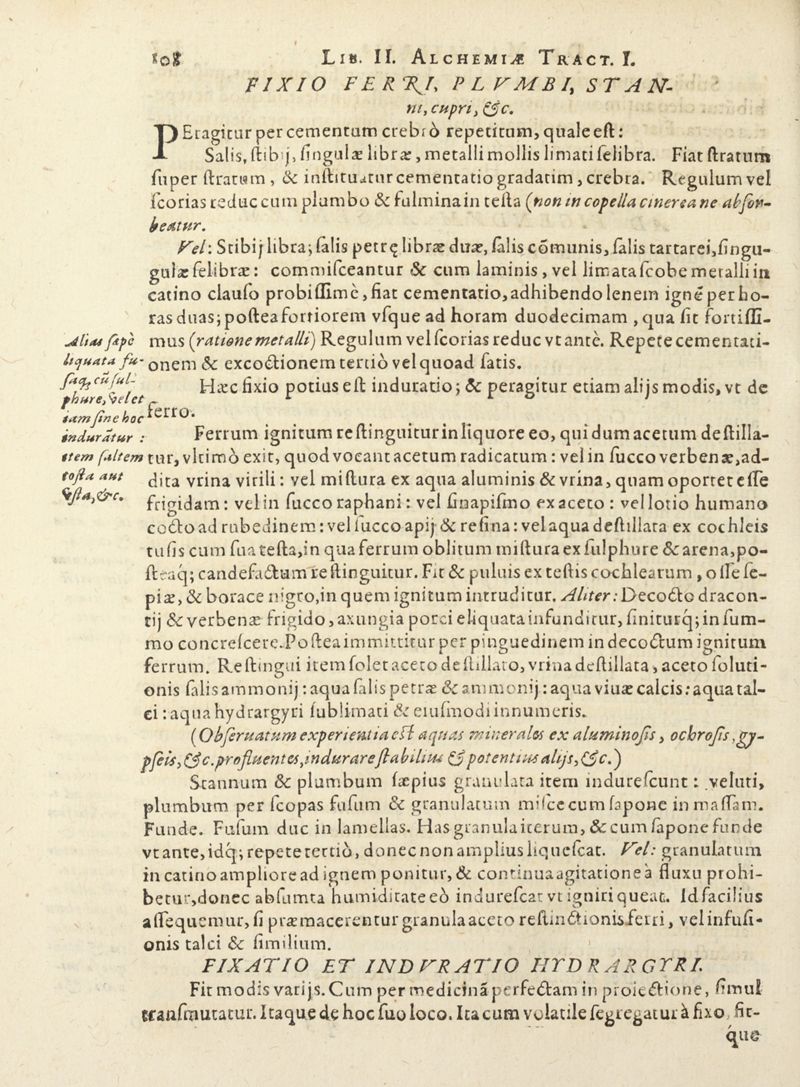 108 LIB. II. ALCHEMIÆ TRACT. I.
FIXIO FERRI, PLVMBI, STAN-
ni, cupri, &c.
PEragitur per cementum crebrò repetitum, quale est:
Salis, stibij, singulæ libræ, metalli mollis limati selibra. Fiat stratum
super stratum, & instituatur cementatio gradatim, crebra. Regulum vel
scorias reduc cum plumbo & fulmina in testa (non in copella cinerea ne absor-
beatur.
Vel: Stibij libra; salis petrę libræ duæ, salis cõmunis, salis tartarei, singu-
gulæ selibræ: commisceantur & cum laminis, vel limata scobe metalli in
catino clauso probissimè, fiat cementatio, adhibendo lenem ignẽ per ho-
ras duas; postea fortiorem vsque ad horam duodecimam, qua sit fortissi-
mus (ratione metalli) Regulum vel scorias reduc vt antè. Repete cementati-
onem & excoctionem tertiò vel quoad satis.
Alias sæpè
liquata fu-
saq; cũ sul-
phure, vel et-
iam sine hoc
induratur:
item saltem
tosta aut
vsta, &c.
Hæc fixio potius est induratio; & peragitur etiam alijs modis, vt de
ferro.
Ferrum ignitum restinguitur in liquore eo, qui dum acetum destilla-
tur, vltimò exit, quod vocant acetum radicatum: vel in succo verbenæ, ad-
dita vrina virili: vel mistura ex aqua aluminis & vrina, quam oportet esse
frigidam: vel in succo raphani: vel sinapismo ex aceto: vel lotio humano
cocto ad rubedinem: vel succo apij & resina: vel aqua destillata ex cochleis
tusis cum sua testa, in qua ferrum oblitum mistura ex sulphure & arena, po-
steaq; candefactum restinguitur. Fit & puluis ex testis cochlearum, osse se-
piæ, & borace nigro, in quem ignitum intruditur. Aliter: Decocto dracon-
tij & verbenæ frigido, axungia porci eliquata infunditur, siniturq; in sum-
mo concrescere. Postea immittitur per pinguedinem in decoctum ignitum
ferrum. Restingui item solet aceto destillato, vrina destillata, aceto soluti-
onis salis ammonij: aqua salis petræ & ammonij: aqua viuæ calcis: aqua tal-
ci: aqua hydrargyri sublimati & eiusmodi innumeris.
(Obseruatum experientia est aquas minerales ex aluminosis, ochrosis, gy-
pseis, &c. profluentes, indurare stabilius & potentius alijs, &c.)
Stannum & plumbum sæpius granulata item indurescunt: veluti,
plumbum per scopas fusum & granulatum misce cum sapone in massam.
Funde. Fusum duc in lamellas. Has granula iterum, & cum sapone funde
vt ante, idq; repete tertiò, donec non amplius liquescat. Vel: granulatum
in catino ampliore ad ignem ponitur, & continua agitatione à fluxu prohi-
betur, donec absumta humiditate eò indurescat vt igniri queat. Id facilius
assequemur, si præmacerentur granula aceto restinctionis ferri, vel infusi-
onis talci & similium.
FIXATIO ET INDVRATIO HYDRARGYRI.
Fit modis varijs. Cum per medicinã perfectam in proiectione, simul
transmutatur. Itaque de hoc suo loco. Ita cum volatile segregatur à fixo, fit-
que